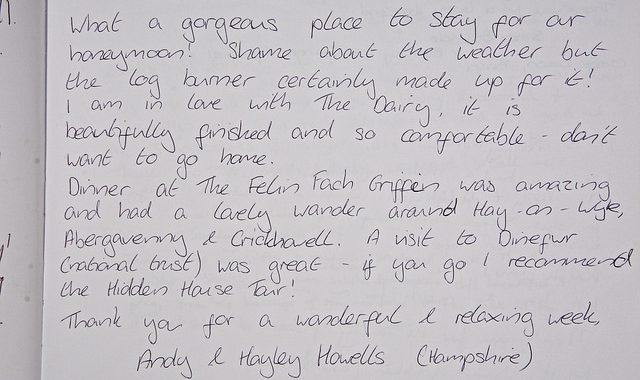 What a gorgeous place to stay for our
honeymoon! Shame about the weather but
the log burner certainly made up for it!
I am in love with The Dairy, it is
beautifully finished and so comfortable - don't
want to go home.
Dinner at The Felin Fach Griffin was amazing
and had a lovely wander around Hay-on-Wye,
Abergavenny & Crickhowell. A visit to Dinefwr
(national trust) was great - if you go I recommend
the Hidden House Tour!
Thank you for a wonderful & relaxing week,
Andy & Hayley Howells (Hampshire)